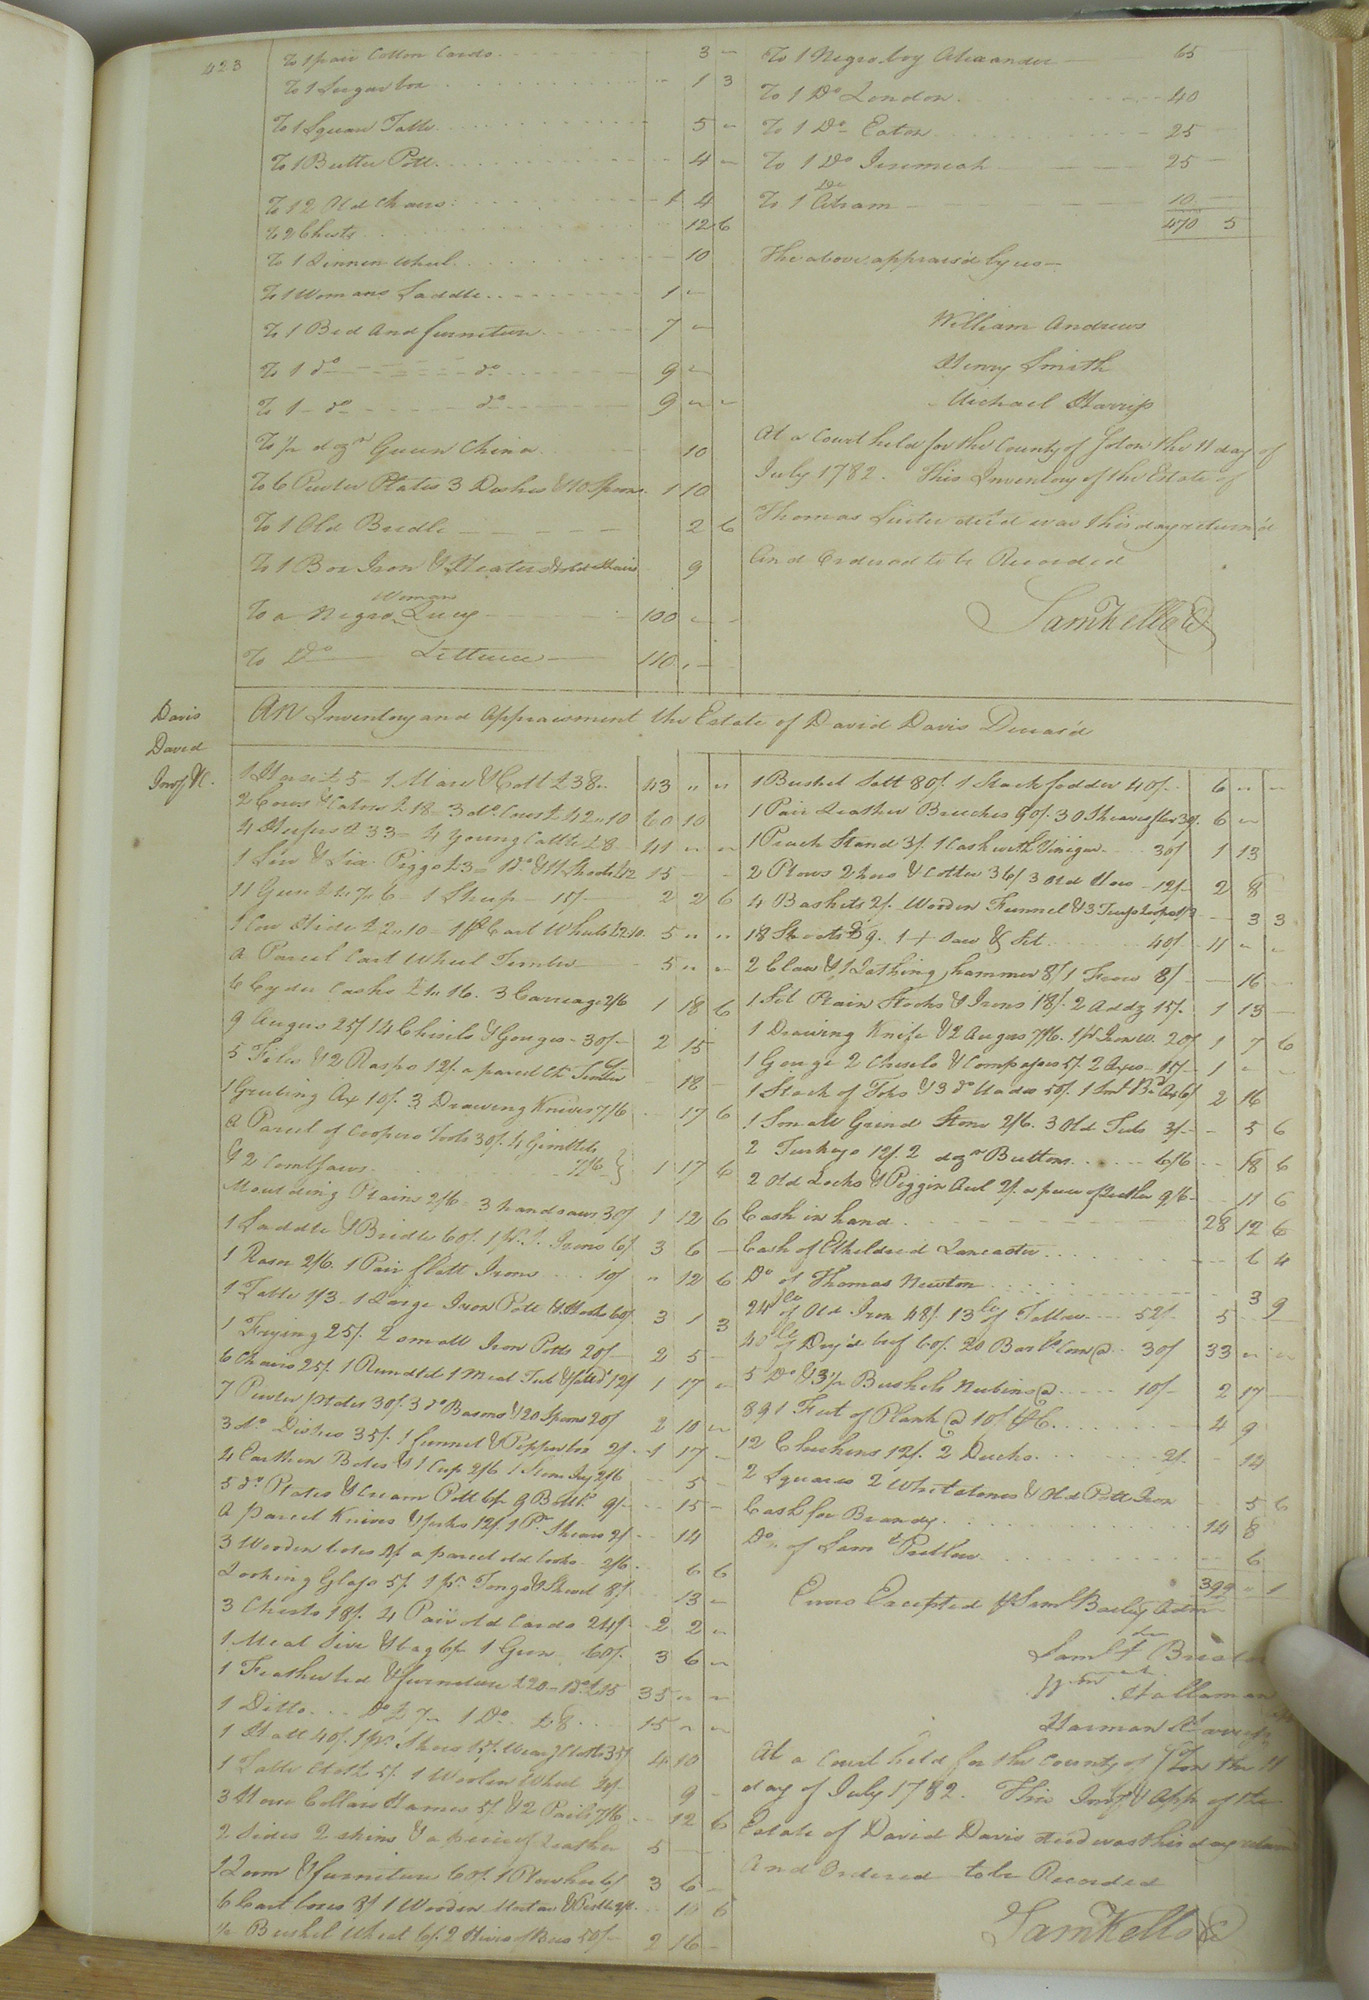 423
To 1 pair Cotton Cards 3 –
To 1 Sugar box 1 3
To 1 Square Table 5 –
To 1 Butter Pott 4 –
To 12 Old Chairs 1 4
To 2 Chests 12 6
To 1 Linnen Wheel 10
To 1 Womans Saddle 1 –
To 1 Bed And furniture 7 –
To 1 do do 9 –
To 1 do do 9 – –
To ½ dozn Queen China 10
To 6 Pewter Plates 3 Dishes & 10 Spoons 1 10
To 1 Old Bridle 2 6
To 1 Box Iron & Heaters & old Chairs 9
Woman
To a Negro Lucy 100 – –
To Do Lettuce 110 – –
To 1 Negro boy Alexander 65
To 1 Do London 40
To 1 Do Eaton 25 –
To 1 Do Jeremiah 25 –
Do
To 1 Abram 10 –
470 5
The above appraisd by us –
William Andrews
Henry Smith
Michael Harriss
At a Court held for the County of Soton the 11 day of
July 1782. This Inventory of the Estate of
Thomas deced was this day return'd
And Ordered to be Recorded
Saml Kello C
Davis
David
Invy &c.
An Inventory and Appraisment the Estate of David Davis Deceas'd
1 Horse £5– 1 Mare & Colt £38 43 " "
2 Cows & Calves £18– 3 do Cows £42"10 60 10
4 Heifers £33– 4 Young Cattle £8 41 " "
1 Sow & Six Piggs £3– 1 Do & 11 Shoats £12 15 – –
11 Geese £1"7"6– 1 Sheep 15/– 2 2 6
1 Cow Hide £2"10– 1 pr Cart Wheels £2"10 5 " "
A Parcel Cart Wheel Timber 5 " "
6 Cyder Casks £1"16. 3 Carriage 2/6 1 18 6
9 Augurs 25/ 14 Chisels & Gouges – 30/– 2 15
5 Files & 2 Rasps 12/. a parcel Ct Timber 6/ – 18 –
1 Grubing Ax 10/. 3 Drawing Knives 7/6 17 6
A Parcel of Coopers Tools 30/. 4 Gimblets
& 2 Compasses 7/6 } 1 17 6
Moulding Plains 2/6– 3 handsaws 30/ 1 12 6
1 Saddle & Bridle 60/. 1 Irons 6/ 3 6 –
1 Rasor 2/6. 1 Pair flatt Irons 10/ " 12 6
1 Table 1/3– 1 Large Iron Pott & Hooks 60/ 3 1 3
1 Frying 25/. 2 small Iron Potts 20/– 2 5 –
6 Chairs 25/. 1 Rundlet 1 Meal Tub 12/ 1 17 –
7 Pewter plates 30/. 3 do Basons & 20 Spoons 20/ 2 10 –
3 do Dishes 35/. 1 funnel & Pepper box 2/– 1 17 –
4 Earthen Boles & 1 Cup 2/6 1 Stone Jug 2/6 5 –
5 do Plates & Cream Pott 6/– 9 Bottls 9/– 15 –
A parcel Knives & forks 12/. 1 Pr Shears 2/– 14
3 Wooden boles 4/ a parcel old books 2/6 6 6
Looking Glass 5/. 1 pr Tongs & Shovel 8/ 13 –
3 Chests 18/. 4 Pair old Cards 24/– 2 2 –
1 Meal Sive & bag 6/– 1 Gun 60/. 3 6 –
1 Feather bed & furniture £20– 1 do £15 35 " "
1 Ditto Do £7– 1 Do £8 15 " "
1 Hatt 40/. 1 pr Shoes 15/. Wearg Cloths 35/ 4 10
1 Table Cloth 5/. 1 Woolen Wheel 9 –
3 Horse Collars Hames 5/. & 2 Pails 7/6 12 6
2 Sides 2 skins & a peice of Leather 5 –
1 Loom & furniture 60/. 1 Plow hoe 6/ 3 6 –
6 Cart boxes 8/ 1 Wooden Mortar & Pestle 2/6 10 6
½ Bushel Wheat 6/. 2 Hives of Bees 50/– 2 16 –
1 Bushel Salt 80/. 1 Stack fodder 40/– 6 " –
1 Pair Leather Breeches 90/. 30 Sheaves flax 30/. 6 "
1 Peach Stand 3/. 1 Cask with Vinigar 30/ 1 13
2 Plows 2 hoes & Colter 36/ 3 Old Hoes 12/– 2 8
4 Baskets 2/. Wooden Funnel & 3 1/3 3 3
18 Shoats £9. 1 + Saw & Set 40/– 11 " –
2 Claw & 1 Lathing hammer 8/ 1 Froe 8/ – 16 –
1 Set Plain Stocks & Irons 18/. 2 Addz 15/. 1 13 –
1 Drawing Knife & 2 Augers 7/6. 20/ 1 7 6
1 Gouge 2 Chisels & Compasses 5/. 2 Axes 15/– 1 – –
1 Stack of Tops & 3 do blades 50/. 1 Ax 6/ 2 16
1 Small Grind Stone 2/6. 3 Old Tubs 3/– 5 6
2 Turkeys 12/. 2 dozn Buttons 6/6 18 6
2 Old Locks & Piggin 2/. a piece of Leather 9/6– 11 6
Cash in hand 28 12 6
Cash of Etheldred Lancaster 6 4
Do of Thomas Newton 3 9
24 lb of Old Iron 48/. 13 lb of Tallow 52/. 5 – –
40 lb of Dry'd beef 60/. 20 Barls Corn @ 30/ 33 " "
5 Do & 3½ Bushels Nubins @ 10/– 2 17 –
391 Feet of Plank @ 10/. 4 9
12 Chickens 12/. 2 Ducks 2/. – 14
2 Squares 2 Whetstones & Old Pott Iron 5 6
Cash for Brandy 14 8
Do of Saml Pretlow 6
399 " 1
Errors Excepted pr Saml Bailey Admr
Saml Bristo
Holleman
Harman Harris
At a Court held for the County of Soton the 11
day of July 1782. This Invy & App. of the
Estate of David Davis deced was this day return
And Ordered to be Recorded
Saml Kello C